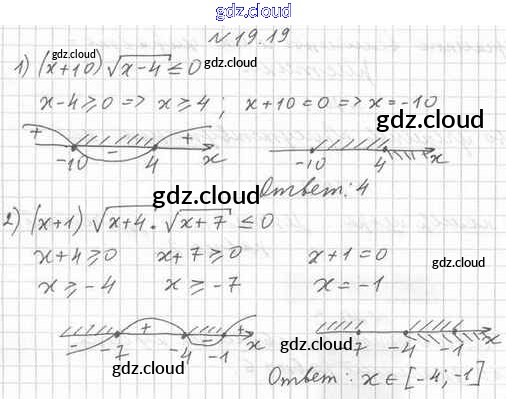 gdz.cloud
№ 19.19
gdz.cloud
1) (x+10) √x-4 ≤ 0
x-4 ≥ 0 => x ≥ 4 ; x+10 = 0 => x = -10
gdz.cloud
+ - + -10 4 x
-10 4 x
Ответ: 4
gdz.cloud
2) (x+1) √x+4 · √x+7 ≤ 0
x+4 ≥ 0 x+7 ≥ 0 x+1 = 0
gdz.cloud
x ≥ -4 x ≥ -7 x = -1
- + - + -7 -4 -1 x
7 -4 -1 x
gdz.cloud
gdz.cloud
Ответ: x ∈ [-4; -1]